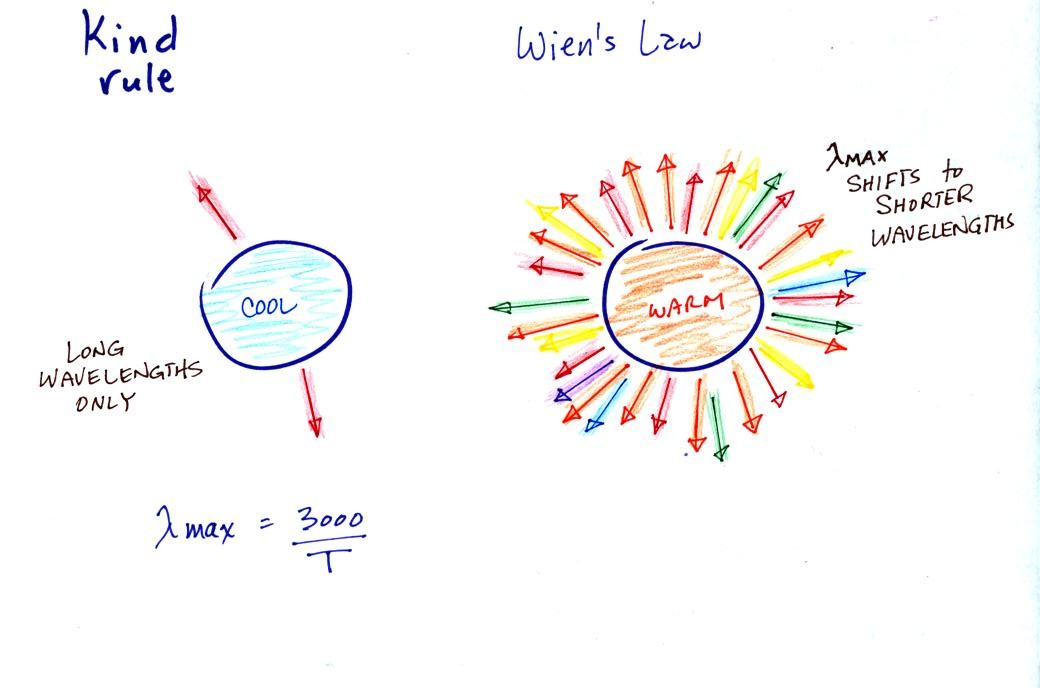 Kind
rule
Wien's Law
λMAX
SHIFTS to
SHORTER
WAVELENGTHS
COOL
WARM
LONG
WAVELENGTHS
ONLY
λmax = 3000
T